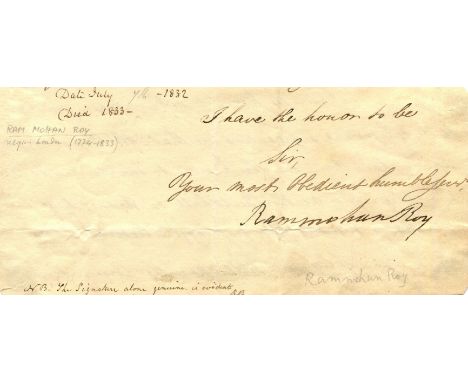 Date July 7th - 1832
Died 1833 -
RAM MOHAN ROY
(1774-1833)
I have the honor to be
Sir,
Your most Obedient humble Serv.
Rammohun Roy
Rammohun Roy
- N.B. The Signature alone genuine is evident